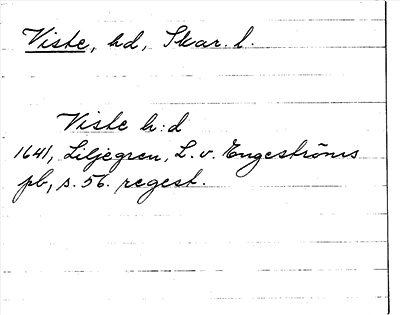 Viste, hd, Skar. l.
Viste h:d
1641, Liljegren, L. v. Engeströms
pb, s. 56. regest.